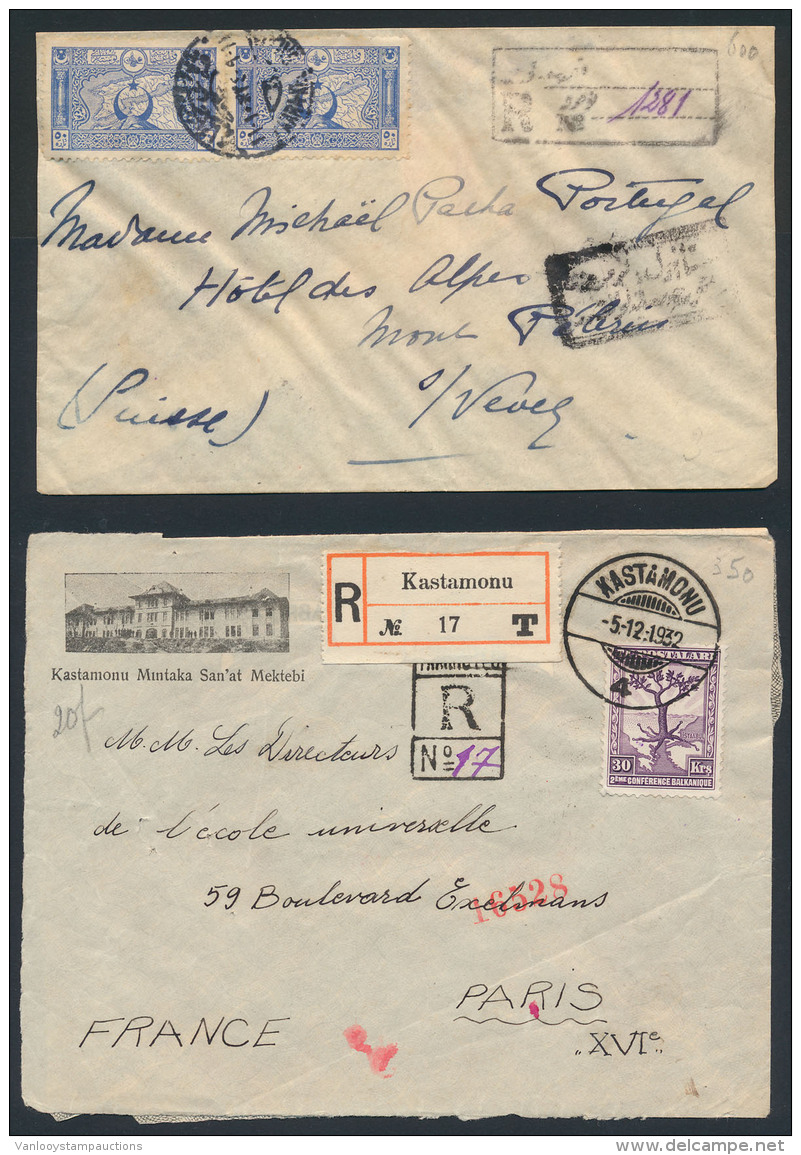 600
R № 1281
Madame Michaël Pacha Portugal
Hôtel des Alpes
Mont Pélerin
s/Vevey
(Suisse)
٥٠ ٥٠ ٥٠ ٥٠
Kastamonu Mıntaka San'at Mektebi
R
Kastamonu
№ 17 T
KASTAMONU
-5-12-1932
4
350
20/-
R
No 17
30 Krs
2ÈME CONFÉRENCE BALKANIQUE
M.M. Les Directeurs
de l'école universelle
59 Boulevard Exelmans
16528
PARIS
FRANCE
„XVIe„
Vanlooystampauctions
delcampe.net